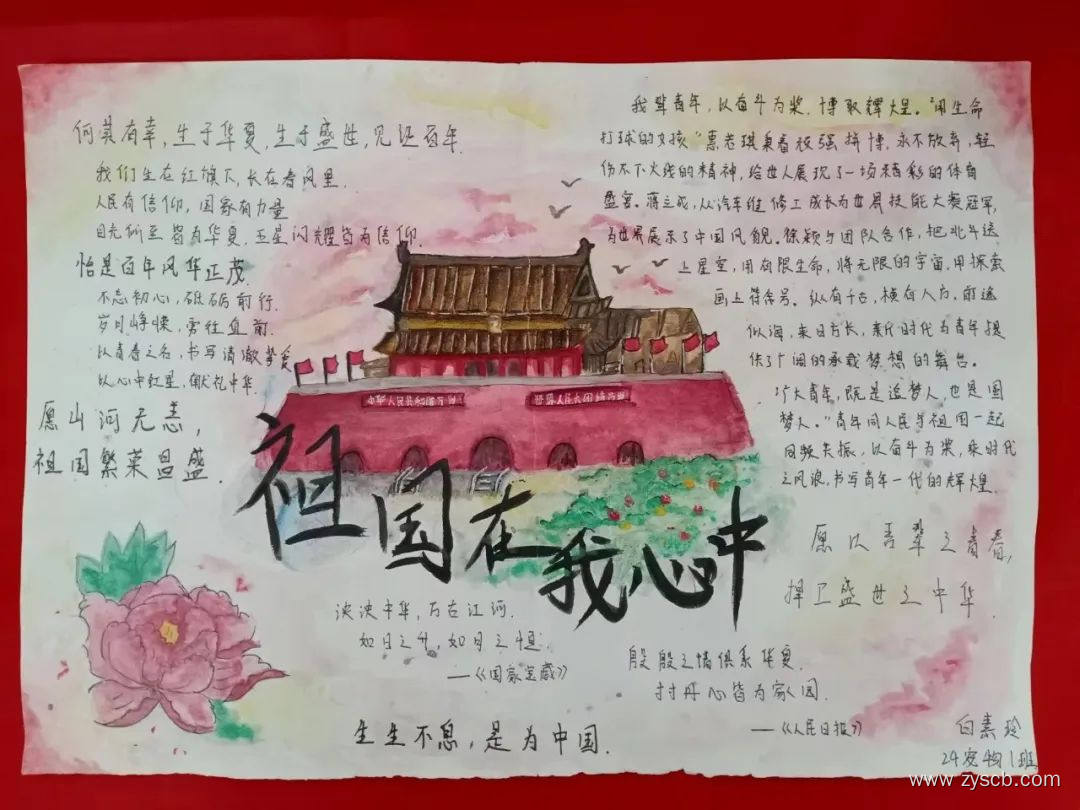 何其有幸,生于华夏,生于盛世,见证百年.
我们生在红旗下,长在春风里.
人民有信仰,国家有力量
目光所至皆为华夏,五星闪耀皆为信仰.
恰是百年风华正茂
不忘初心,砥砺前行.
岁月峥嵘,勇往直前.
以青春之名,书写清澈挚爱
以心中红星,献礼中华.
愿山河无恙,
祖国繁荣昌盛.
我辈青年,以奋斗为桨,博取辉煌。"用生命
打球的女孩"惠若琪秉着顽强拼博,永不放弃,轻
伤不下火线的精神,给世人展现了一场精彩的体育
盛宴。蒋立成,从汽车维修工成长为世界技能大赛冠军,
为世界展示了中国风貌。徐颖与团队合作,把北斗送
上星空,用有限生命,将无限的宇宙,用探索
画上符号。纵有千古,横有八方,前途
似海,来日方长,新代时代为青年提
供了广阔的承载梦想的舞台。
广大青年,既是追梦人,也是圆
梦人。"青年同人民与祖国一起
同频共振,以奋斗为桨,乘时代
之风浪,书写青年一代的辉煌.
愿以吾辈之青春,
捍卫盛世之中华.
中华人民共和国万岁
世界人民大团结万岁
祖国在我心中
泱泱中华,万古江河.
如日之升,如月之恒.
——《国家宝藏》
殷殷之情俱系华夏.
寸寸丹心皆为家国.
——《人民日报》
生生不息,是为中国.
白素玲
24宠物1班
www.zyscb.com